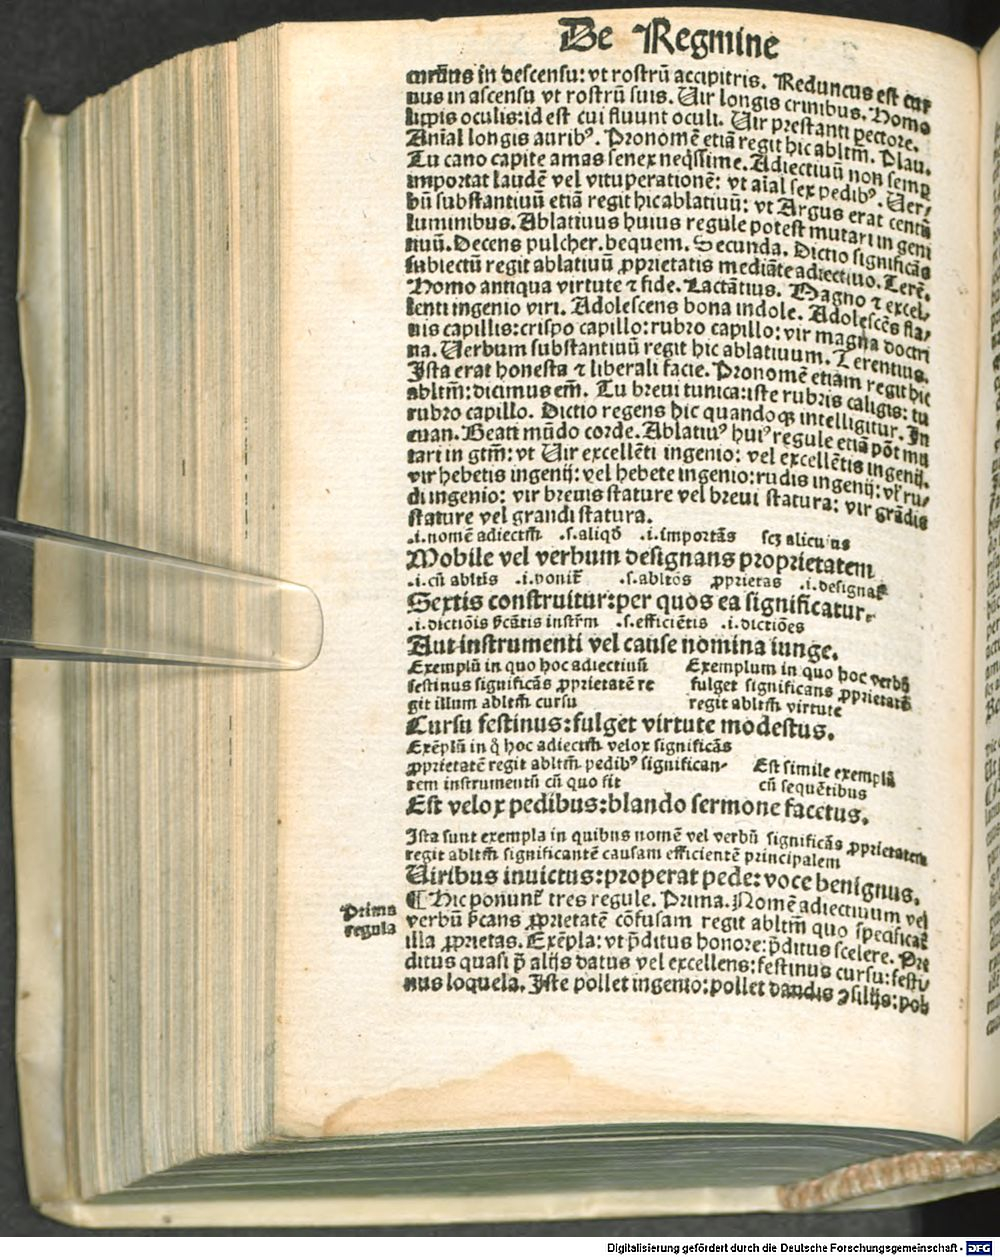 De Regmine
curuus in descensu: vt rostrū accipitris. Reduncus est cur
uus in ascensu vt rostrū suis. Uir longis crinibus. Homo
lippis oculis: id est cui fluunt oculi. Uir prestanti pectore.
Aīal longis auribꝰ. Pronomē etiā regit hic abltm̄. Plau.
Tu cano capite amas senex neqssime. Adiectiuū non semꝑ
importat laudē vel vituperationē: vt aīal sex pedibꝰ. Uer/
bū substantiuū etiā regit hic ablatiuū: vt Argus erat centū
luminibus. Ablatiuus huius regule potest mutari in geni
tiuū. Decens pulcher. bequem. Secunda. Dictio significās
subiectū regit ablatiuū ꝓprietatis mediāte adiectiuo. Terē.
Homo antiqua virtute ⁊ fide. Lactātius. Magno ⁊ excel/
lenti ingenio viri. Adolescens bona indole. Adolescēs fla/
uis capillis: crispo capillo: rubro capillo: vir magna doctri
na. Uerbum substantiuū regit hic ablatiuum. Terentius.
Ista erat honesta ⁊ liberali facie. Pronomē etiam regit hic
abltm̄: dicimus em̄. Tu breui tunica: iste rubris caligis: tu
rubro capillo. Dictio regens hic quandoqꝫ intelligitur. In
euan. Beati mūdo corde. Ablatiuꝰ huiꝰ regule etiā pōt mu
tari in gtm̄: vt Uir excellēti ingenio: vel excellētis ingenij.
vir hebetis ingenij: vel hebete ingenio: rudis ingenij: vl̄ ru/
di ingenio: vir breuis stature vel breui statura: vir grādis
stature vel grandi statura.
.i. nomē adiectm̄ .s. aliqđ .i. importās scꝫ alicuius
Mobile vel verbum designans proprietatem
.i. cū abltis .i. ponit̄ .s. abltos ꝓprietas .i. designat̄
Sextis construitur: per quos ea significatur.
.i. dictiōis p̄cātis instrm̄ .s. efficiētis .i. dictiōes
Aut instrumenti vel cause nomina iunge.
Exemplū in quo hoc adiectiuū
festinus significās ꝓprietatē re
git illum abltm̄ cursu
Exemplum in quo hoc verbū
fulget significans ꝓprietatē
regit abltm̄ virtute
Cursu festinus: fulget virtute modestus.
Exēplū in q̊ hoc adiectm̄ velox significās
ꝓprietatē regit abltm̄ pedibꝰ significan-
tem instrumentū cū quo fit
Est simile exemplū
cū sequētibus
Est velox pedibus: blando sermone facetus.
Ista sunt exempla in quibus nomē vel verbū significās ꝓprietatem
regit abltm̄ significantē causam efficientē principalem
Uiribus inuictus: properat pede: voce benignus.
¶ Hic ponunt̄ tres regule. Prima. Nomē adiectiuum vel
Prima
regula
verbū p̄cans ꝓprietatē cōfusam regit abltm̄ quo specificat̄
illa ꝓprietas. Exēpla: vt p̄ditus honore: p̄ditus scelere. Pre
ditus quasi p̄ alijs datus vel excellens: festinus cursu: festi/
nus loquela. Iste pollet ingenio: pollet dandis ꝯsilijs: pol
Digitalisierung gefördert durch die Deutsche Forschungsgemeinschaft - DFG